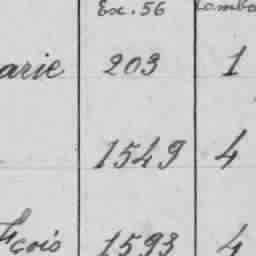 Ex. 56
arie 203 1
1549 4
çois 1593 4